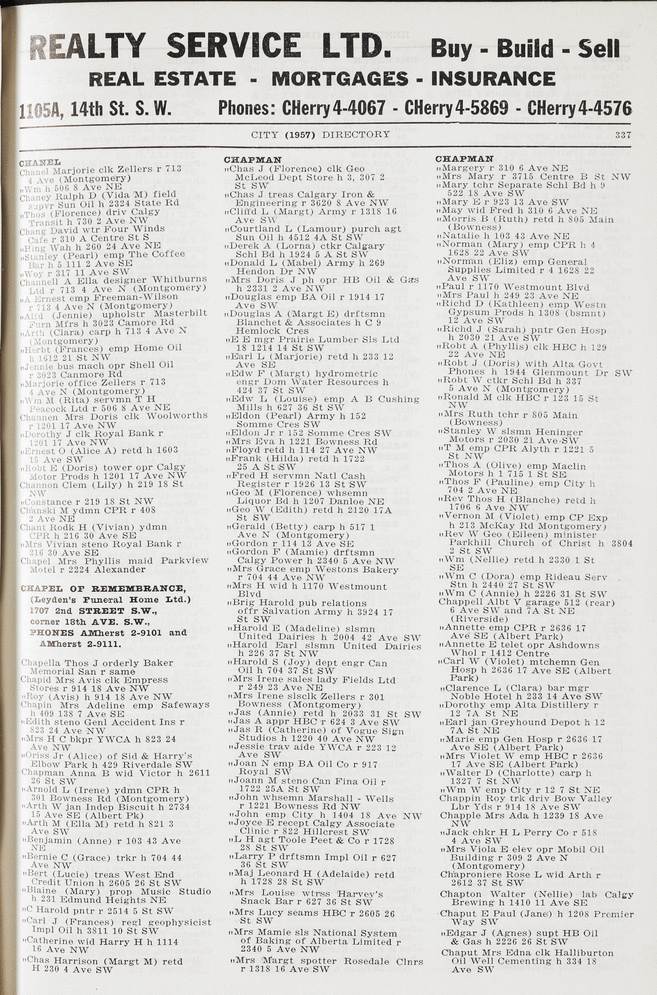 REALTY SERVICE LTD. Buy - Build - Sell
REAL ESTATE - MORTGAGES - INSURANCE
1105A, 14th St. S. W. Phones: CHerry 4-4067 - CHerry 4-5869 - CHerry 4-4576
CITY (1957) DIRECTORY 337
CHANEL
Chanel Marjorie clk Zellers r 713
4 Ave (Montgomery)
„Wm h 506 8 Ave NE
Chaney Ralph D (Vida M) field
supvr Sun Oil h 2324 State Rd
„Thos (Florence) driv Calgy
Transit h 730 2 Ave NW
Chang David wtr Four Winds
Cafe r 310 A Centre St S
„Bing Wah h 260 24 Ave NE
„Stanley (Pearl) emp The Coffee
Bar h 5 111 2 Ave SE
„Woy r 317 11 Ave SW
Channell A Ella designer Whitburns
Ltd r 713 4 Ave N (Montgomery)
„A Ernest emp Freeman-Wilson
r 713 4 Ave N (Montgomery)
„Alid (Jennie) upholstr Masterbilt
Furn Mfrs h 3023 Camore Rd
„Arth (Clara) carp h 713 4 Ave N
(Montgomery)
„Herbt (Frances) emp Home Oil
h 1612 21 St NW
„Jennie bus mach opr Shell Oil
r 3023 Canmore Rd
„Marjorie office Zellers r 713
4 Ave N (Montgomery)
„Wm M (Rita) servmn T H
Peacock Ltd r 506 8 Ave NE
Channen Mrs Doris clk Woolworths
r 1201 17 Ave NW
„Dorothy J clk Royal Bank r
1201 17 Ave NW
„Ernest O (Alice A) retd h 1603
15 Ave SW
„Robt E (Doris) tower opr Calgy
Motor Prods h 1201 17 Ave NW
Channon Clem (Lily) h 219 18 St
NW
„Constance r 219 18 St NW
Chanski M ydmn CPR r 408
2 Ave NE
Chant Rodk H (Vivian) ydmn
CPR h 216 30 Ave SE
„Mrs Vivian steno Royal Bank r
216 30 Ave SE
Chapel Mrs Phyllis maid Parkview
Motel r 2224 Alexander
CHAPEL OF REMEMBRANCE,
(Leyden's Funeral Home Ltd.)
1707 2nd STREET S.W.,
corner 18th AVE. S.W.,
PHONES AMherst 2-9101 and
AMherst 2-9111.
Chapella Thos J orderly Baker
Memorial San r same
Chapid Mrs Avis clk Empress
Stores r 914 18 Ave NW
„Roy (Avis) h 914 18 Ave NW
Chapin Mrs Adeline emp Safeways
h 409 138 7 Ave SE
„Edith steno Genl Accident Ins r
823 24 Ave NW
„Mrs H C bkpr YWCA h 823 24
Ave NW
„Orriss Jr (Alice) of Sid & Harry's
Elbow Park h 429 Riverdale SW
Chapman Anna B wid Victor h 2611
26 St SW
„Arnold L (Irene) ydmn CPR h
301 Bowness Rd (Montgomery)
„Arth W jan Indep Biscuit h 2734
15 Ave SE (Albert Pk)
„Arth M (Ella M) retd h 821 3
Ave SW
„Benjamin (Anne) r 103 43 Ave
NE
„Bernie C (Grace) trkr h 704 44
Ave NW
„Bert (Lucie) treas West End
Credit Union h 2605 26 St SW
„Blaine (Mary) prop Music Studio
h 231 Edmund Heights NE
„C Harold pntr r 2514 5 St SW
„Carl J (Frances) regl geophysicist
Impl Oil h 3811 10 St SW
„Catherine wid Harry H h 1114
16 Ave NW
„Chas Harrison (Margt M) retd
H 230 4 Ave SW
CHAPMAN
„Chas J (Florence) clk Geo
McLeod Dept Store h 3, 307 2
St SW
„Chas J treas Calgary Iron &
Engineering r 3620 8 Ave NW
„Cliffd L (Margt) Army r 1318 16
Ave SW
„Courtland L (Lamour) purch agt
Sun Oil h 4512 4A St SW
„Derek A (Lorna) ctkr Calgary
Schl Bd h 1924 5 A St SW
„Donald L (Mabel) Army h 269
Hendon Dr NW
„Mrs Doris J ph opr HB Oil & Gas
h 2331 2 Ave NW
„Douglas emp BA Oil r 1914 17
Ave SW
„Douglas A (Margt E) drftsmn
Blanchet & Associates h C 9
Hemlock Cres
„E E mgr Prairie Lumber Sls Ltd
18 1214 14 St SW
„Earl L (Marjorie) retd h 233 12
Ave SE
„Edw F (Margt) hydrometric
engr Dom Water Resources h
424 37 St SW
„Edw L (Louise) emp A B Cushing
Mills h 627 36 St SW
„Eldon (Pearl) Army h 152
Somme Cres SW
„Eldon Jr r 152 Somme Cres SW
„Mrs Eva h 1221 Bowness Rd
„Floyd retd h 114 27 Ave NW
„Frank (Hilda) retd h 1722
25 A St SW
„Fred H servmn Natl Cash
Register r 1926 13 St SW
„Geo M (Florence) whsemn
Liquor Bd h 1207 Danloe NE
„Geo W (Edith) retd h 2120 17A
St SW
„Gerald (Betty) carp h 517 1
Ave N (Montgomery)
„Gordon r 114 13 Ave SE
„Gordon F (Mamie) drftsmn
Calgy Power h 2340 5 Ave NW
„Mrs Grace emp Westons Bakery
r 704 44 Ave NW
„Mrs H wid h 1170 Westmount
Blvd
„Brig Harold pub relations
offr Salvation Army h 3924 17
St SW
„Harold E (Madeline) slsmn
United Dairies h 2004 42 Ave SW
„Harold Earl slsmn United Dairies
h 226 37 St NW
„Harold S (Joy) dept engr Can
Oil h 704 37 St SW
„Mrs Irene sales lady Fields Ltd
r 249 23 Ave NE
„Mrs Irene slsclk Zellers r 301
Bowness (Montgomery)
„Jas (Annie) retd h 2033 31 St SW
„Jas A appr HBC r 624 3 Ave SW
„Jas R (Catherine) of Vogue Sign
Studios h 1220 40 Ave NW
„Jessie trav aide YWCA r 223 12
Ave SW
„Joan N emp BA Oil Co r 917
Royal SW
„Joann M steno Can Fina Oil r
1722 25A St SW
„John whsemn Marshall - Wells
r 1221 Bowness Rd NW
„John emp City h 1404 18 Ave NW
„Joyce E recept Calgy Associate
Clinic r 822 Hillcrest SW
„L H agt Toole Peet & Co r 1728
28 St SW
„Larry P drftsmn Impl Oil r 627
36 St SW
„Maj Leonard H (Adelaide) retd
h 1728 28 St SW
„Mrs Louise wtrss Harvey's
Snack Bar r 627 36 St SW
„Mrs Lucy seams HBC r 2605 26
St SW
„Mrs Mamie sls National System
of Baking of Alberta Limited r
2340 5 Ave NW
„Mrs Margt spotter Rosedale Clnrs
r 1318 16 Ave SW
CHAPMAN
„Margery r 310 6 Ave NE
„Mrs Mary r 3715 Centre B St NW
„Mary tchr Separate Schl Bd h 9
522 18 Ave SW
„Mary E r 923 13 Ave SW
„May wid Fred h 310 6 Ave NE
„Morris B (Ruth) retd h 805 Main
(Bowness)
„Natalie h 103 43 Ave NE
„Norman (Mary) emp CPR h 4
1628 22 Ave SW
„Norman (Eliz) emp General
Supplies Limited r 4 1628 22
Ave SW
„Paul r 1170 Westmount Blvd
„Mrs Paul h 249 23 Ave NE
„Richd D (Kathleen) emp Westn
Gypsum Prods h 1308 (bsmnt)
12 Ave SW
„Richd J (Sarah) pntr Gen Hosp
h 2030 21 Ave SW
„Robt A (Phyllis) clk HBC h 129
22 Ave NE
„Robt J (Doris) with Alta Govt
Phones h 1944 Glenmount Dr SW
„Robt W ctkr Schl Bd h 337
5 Ave N (Montgomery)
„Ronald M clk HBC r 123 15 St
NW
„Mrs Ruth tchr r 805 Main
(Bowness)
„Stanley W slsmn Heninger
Motors r 2030 21 Ave SW
„T M emp CPR Alyth r 1221 5
St NW
„Thos A (Olive) emp Maclin
Motors h 1 715 1 St SE
„Thos F (Pauline) emp City h
704 2 Ave NE
„Rev Thos H (Blanche) retd h
1706 6 Ave NW
„Vernon M (Violet) emp CP Exp
h 213 McKay Rd Montgomery)
„Rev W Geo (Eileen) minister
Parkhill Church of Christ h 3804
2 St SW
„Wm (Nellie) retd h 2330 1 St
SE
„Wm C (Dora) emp Rideau Serv
Stn h 2440 27 St SW
„Wm C (Annie) h 2226 31 St SW
Chappell Albt V garage 512 (rear)
6 Ave SW and 7A St NE
(Riverside)
„Annette emp CPR r 2636 17
Ave SE (Albert Park)
„Annette E telet opr Ashdowns
Whol r 1412 Centre
„Carl W (Violet) mtchemn Gen
Hosp h 2636 17 Ave SE (Albert
Park)
„Clarence L (Clara) bar mgr
Noble Hotel h 233 14 Ave SW
„Dorothy emp Alta Distillery r
12 7A St NE
„Earl jan Greyhound Depot h 12
7A St NE
„Marie emp Gen Hosp r 2636 17
Ave SE (Albert Park)
„Mrs Violet W emp HBC r 2636
17 Ave SE (Albert Park)
„Walter D (Charlotte) carp h
1327 7 St NW
„Wm W emp City r 12 7 St NE
Chappin Roy trk driv Bow Valley
Lbr Yds r 914 18 Ave SW
Chapple Mrs Ada h 1239 18 Ave
NW
„Jack chkr H L Perry Co r 518
4 Ave SW
„Mrs Viola E elev opr Mobil Oil
Building r 309 2 Ave N
(Montgomery)
Chaproniere Rose L wid Arth r
2612 37 St SW
Chapton Walter (Nellie) lab Calgy
Brewing h 1410 11 Ave SE
Chaput E Paul (Jane) h 1208 Premier
Way SW
„Edgar J (Agnes) supt HB Oil
& Gas h 2226 26 St SW
Chaput Mrs Edna clk Halliburton
Oil Well Cementing h 334 18
Ave SW